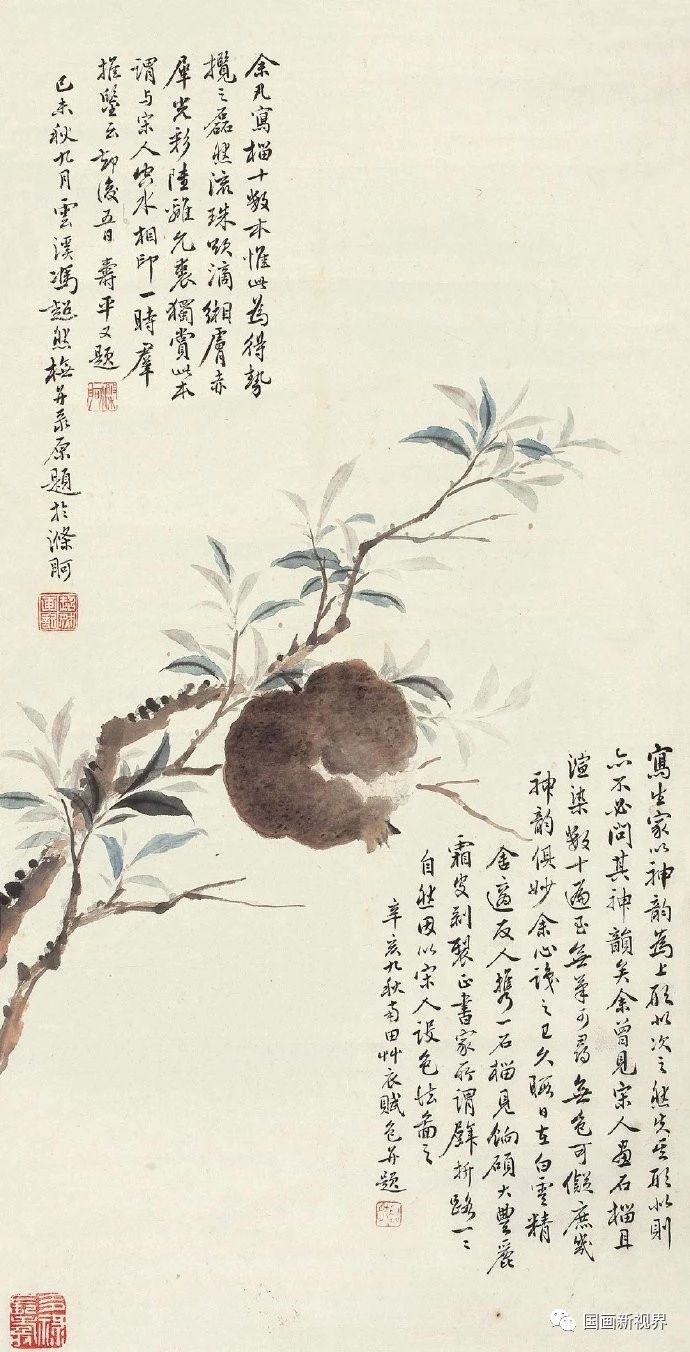 余凡寫榴十數本惟此為得勢
攬之磊然流珠欲滴緗膚赤
犀光彩陸離允裘獨賞此本
謂与宋人水相印一時羣
推鑒云却後五日壽平又題
己未秋九月雲溪馮超然橅并录原題於滌舸
寫生家以神韵為上形似次之然失其形似則
亦不必問其神韻矣余曾見宋人畫石榴且
渲染數十遍至無筆可尋無色可擬庶幾
神韵俱妙余心識之已久暇日在白雲精
舍適友人攜一石榴見餉碩大豐麗
霜皮剥裂正書家所謂拆路一一
自然因以宋人設色法圖之
辛亥九秋南田艸衣賦色并題
国画新视界